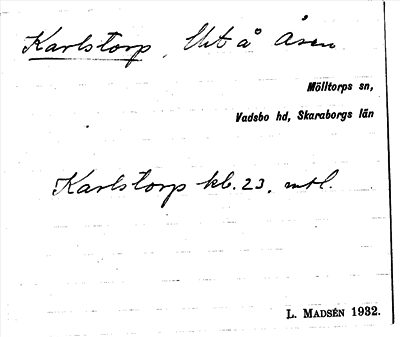 Karlstorp, Utt å Åsen
Mölltorps sn,
Vadsbo hd, Skaraborgs län
Karlstorp kb. 23. mtl.
L. MADSÉN 1932.